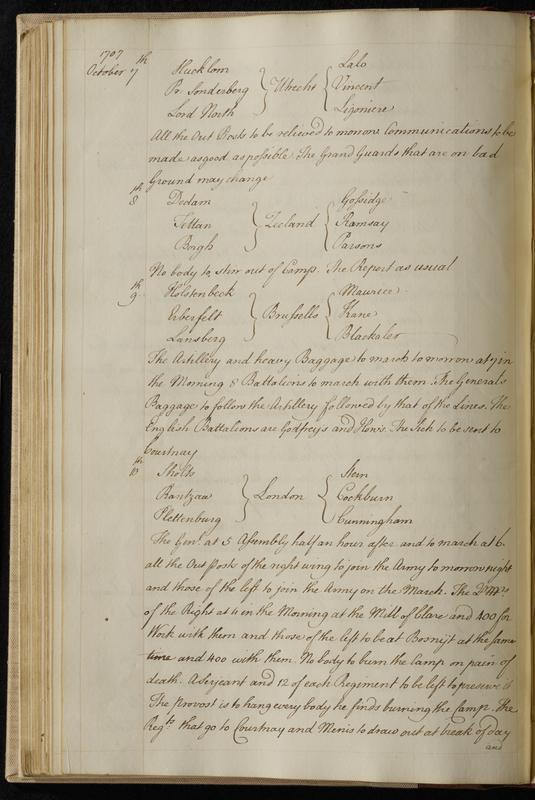 1707
October 7th Hucklom } Utrecht { Lalo
Pr. Sonderberg Vincent
Lord North Ligoniere
All the Out Posts to be relieved to morrow Communications to be
made as good as possible The Grand Guards that are on bad
Ground may change
8th Dedam } Zeeland { Gofsidge
Tettan Ramsay
Bergh Parsons
No body to stir out of Camp. The Report as usual
9th Holstenbeck } Brussells { Maurice
Erberfelt Kane
Lansberg Blackaler
The Artillery and heavy Baggage to march to morrow at 7 in
the Morning 8 Battalions to march with them. The Generals
Baggage to follow the Artillery followed by that of the Lines. The
English Battalions are Godfrey's and How's. The Sick to be sent to
Courtnay
10th Sholts } London { Stern
Rantzaw Cockburn
Plettenburg Cunningham
The Genl. at 5 Assembly half an hour after and to march at 6.
all the Out posts of the right wing to join the Army to morrow night
and those of the left to join the Army on the March. The
of the Right at 4 in the Morning at the Mill of Clare and 400 for
Work with them and those of the left to be at Bosnijt at the same
time and 400 with them. No body to burn the Camp on pain of
death. A Serjeant and 12 of each Regiment to be left to preserve it
The provost is to hang every body he finds burning the Camp. The
Regts. that go to Courtnay and Menis to draw out at break of day
and